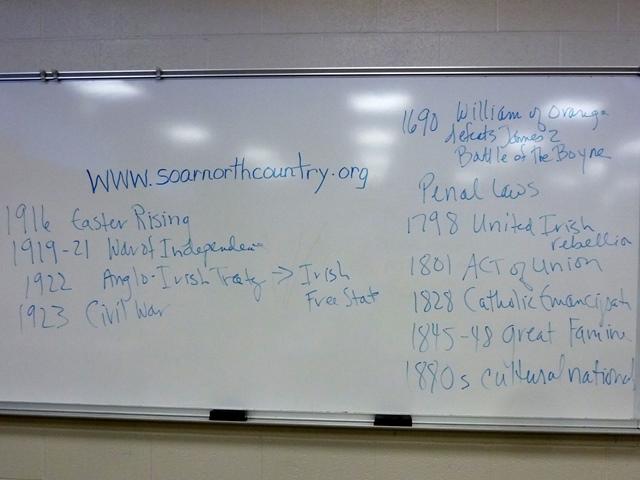 www.soarnorthcountry.org
1916 Easter Rising
1919-21 War of Independence
1922 Anglo-Irish Treaty → Irish
Free State
1923 Civil War
1690 William of Orange
defeats James 2
Battle of the Boyne
Penal Laws
1798 United Irish
rebellio
1801 ACT of Union
1828 Catholic Emancipati
1845-48 Great Famine
1890s cultural national